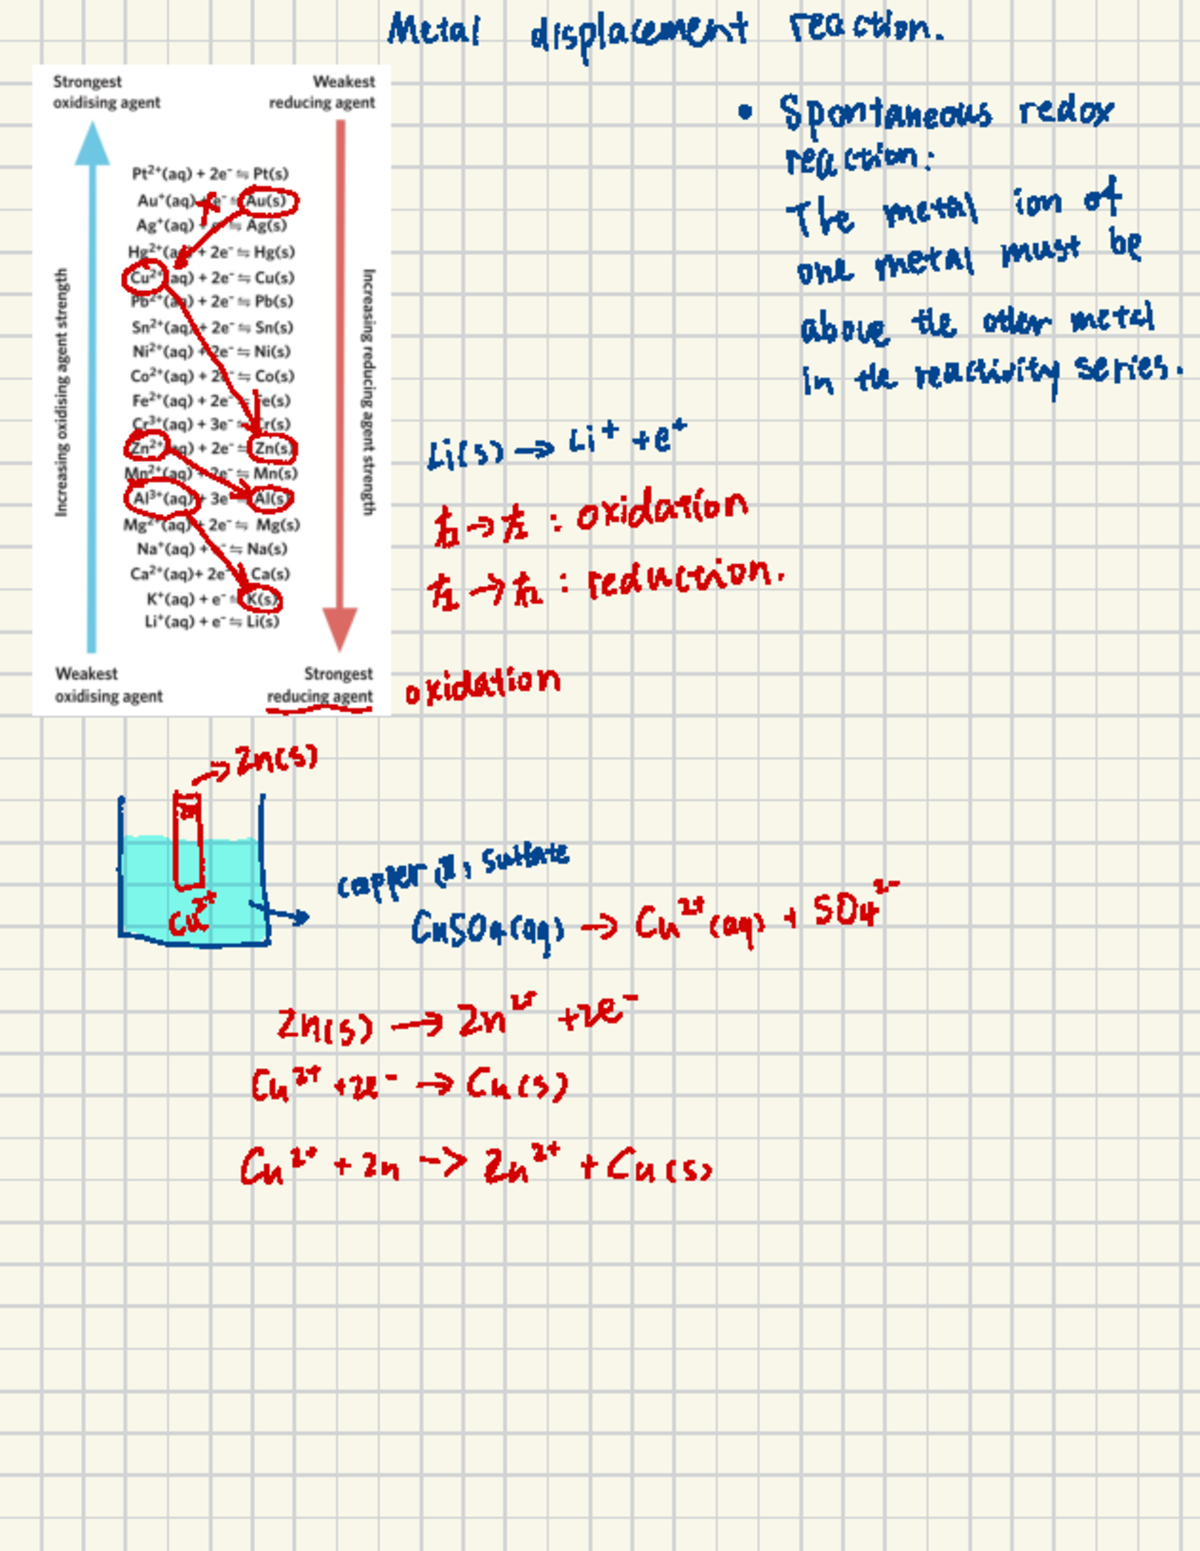 Metal displacement reaction.
Strongest
oxidising agent
Weakest
reducing agent
Increasing oxidising agent strength
Pt²⁺(aq) + 2e⁻ ⇋ Pt(s)
Au⁺(aq) + e⁻ ⇋ Au(s)
Ag⁺(aq) + e⁻ ⇋ Ag(s)
Hg²⁺(aq) + 2e⁻ ⇋ Hg(s)
Cu²⁺(aq) + 2e⁻ ⇋ Cu(s)
Pb²⁺(aq) + 2e⁻ ⇋ Pb(s)
Sn²⁺(aq) + 2e⁻ ⇋ Sn(s)
Ni²⁺(aq) + 2e⁻ ⇋ Ni(s)
Co²⁺(aq) + 2e⁻ ⇋ Co(s)
Fe²⁺(aq) + 2e⁻ ⇋ Fe(s)
Cr³⁺(aq) + 3e⁻ ⇋ Cr(s)
Zn²⁺(aq) + 2e⁻ ⇋ Zn(s)
Mn²⁺(aq) + 2e⁻ ⇋ Mn(s)
Al³⁺(aq) + 3e⁻ ⇋ Al(s)
Mg²⁺(aq) + 2e⁻ ⇋ Mg(s)
Na⁺(aq) + e⁻ ⇋ Na(s)
Ca²⁺(aq)+ 2e⁻ ⇋ Ca(s)
K⁺(aq) + e⁻ ⇋ K(s)
Li⁺(aq) + e⁻ ⇋ Li(s)
Increasing reducing agent strength
Weakest
oxidising agent
Strongest
reducing agent
• Spontaneous redox
reaction:
The metal ion of
one metal must be
above the other metal
in the reactivity series.
Li(s) → Li⁺ + e⁺
右→左 : oxidation
左→右 : reduction.
oxidation
→ Zn(s)
Cu²⁺
copper (II) sulfate
CuSO4(aq) → Cu²⁺(aq) + SO4²⁻
Zn(s) → Zn²⁺ + 2e⁻
Cu²⁺ + 2e⁻ → Cu(s)
Cu²⁺ + Zn → Zn²⁺ + Cu(s)